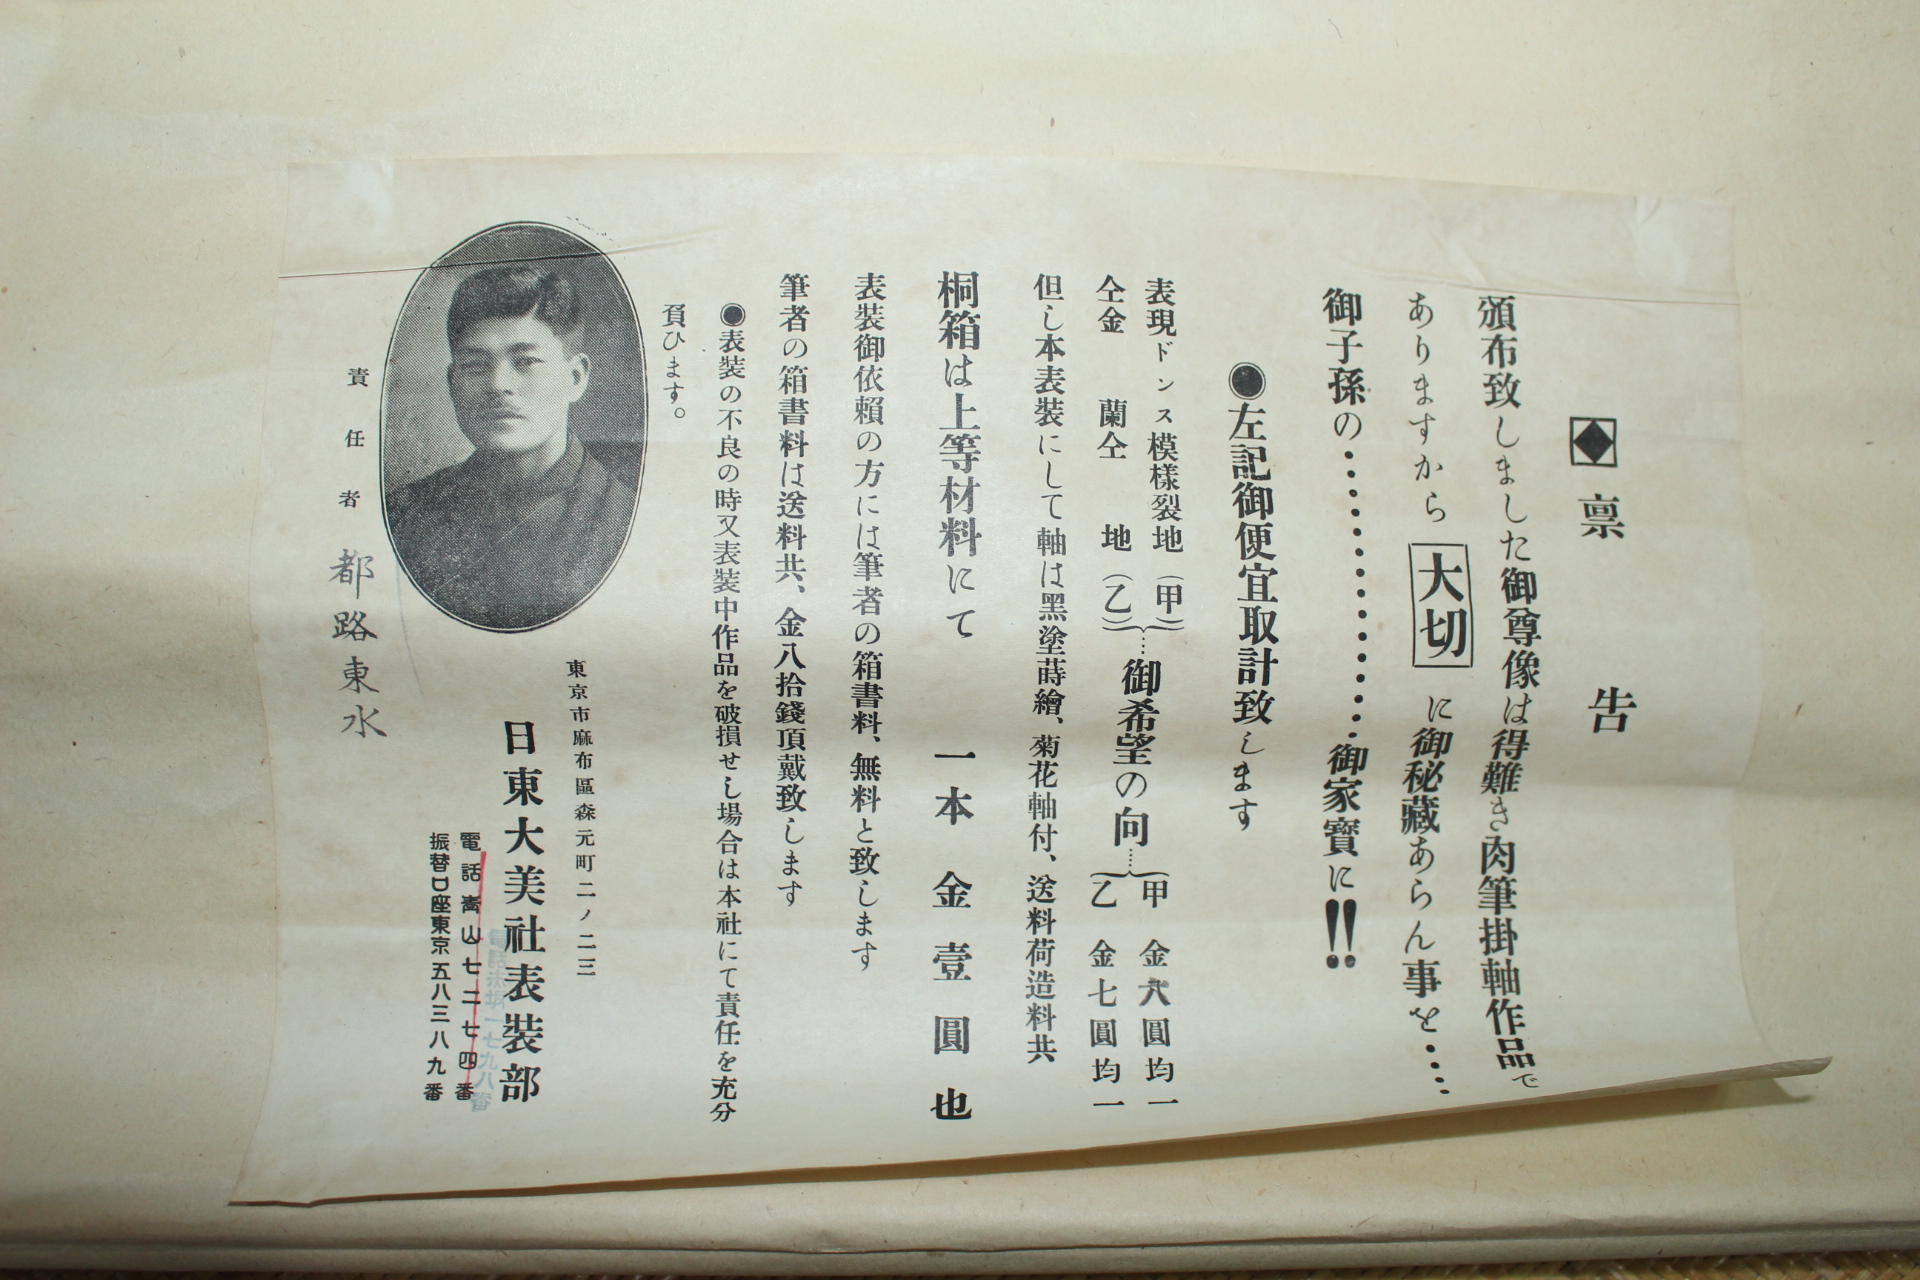 ◆稟告
頒布致しました御尊像は得難き肉筆掛軸作品で
ありますから大切に御秘藏あらん事を‥‥
御子孫の・・・・・・・・・・・・・・御家寶に!!
●左記御便宜取計致します
表現ドンス模樣裂地(甲)
仝金蘭仝地(乙)
‥‥御希望の向‥‥
甲 金八圓均一
乙 金七圓均一
但し本表裝にして軸は黑塗蒔繪、菊花軸付、送料荷造料共
桐箱は上等材料にて 一本金壹圓也
表裝御依賴の方には筆者の箱書料、無料と致します
筆者の箱書料は送料共、金八拾錢頂戴致します
●表裝の不良の時又表裝中作品を破損せし場合は本社にて責任を充分
負ひます。
東京市麻布區森元町二ノ二三
日東大美社表裝部
電話靑山七二七四番
振替口座東京五八三八九番
責任者 都路東水